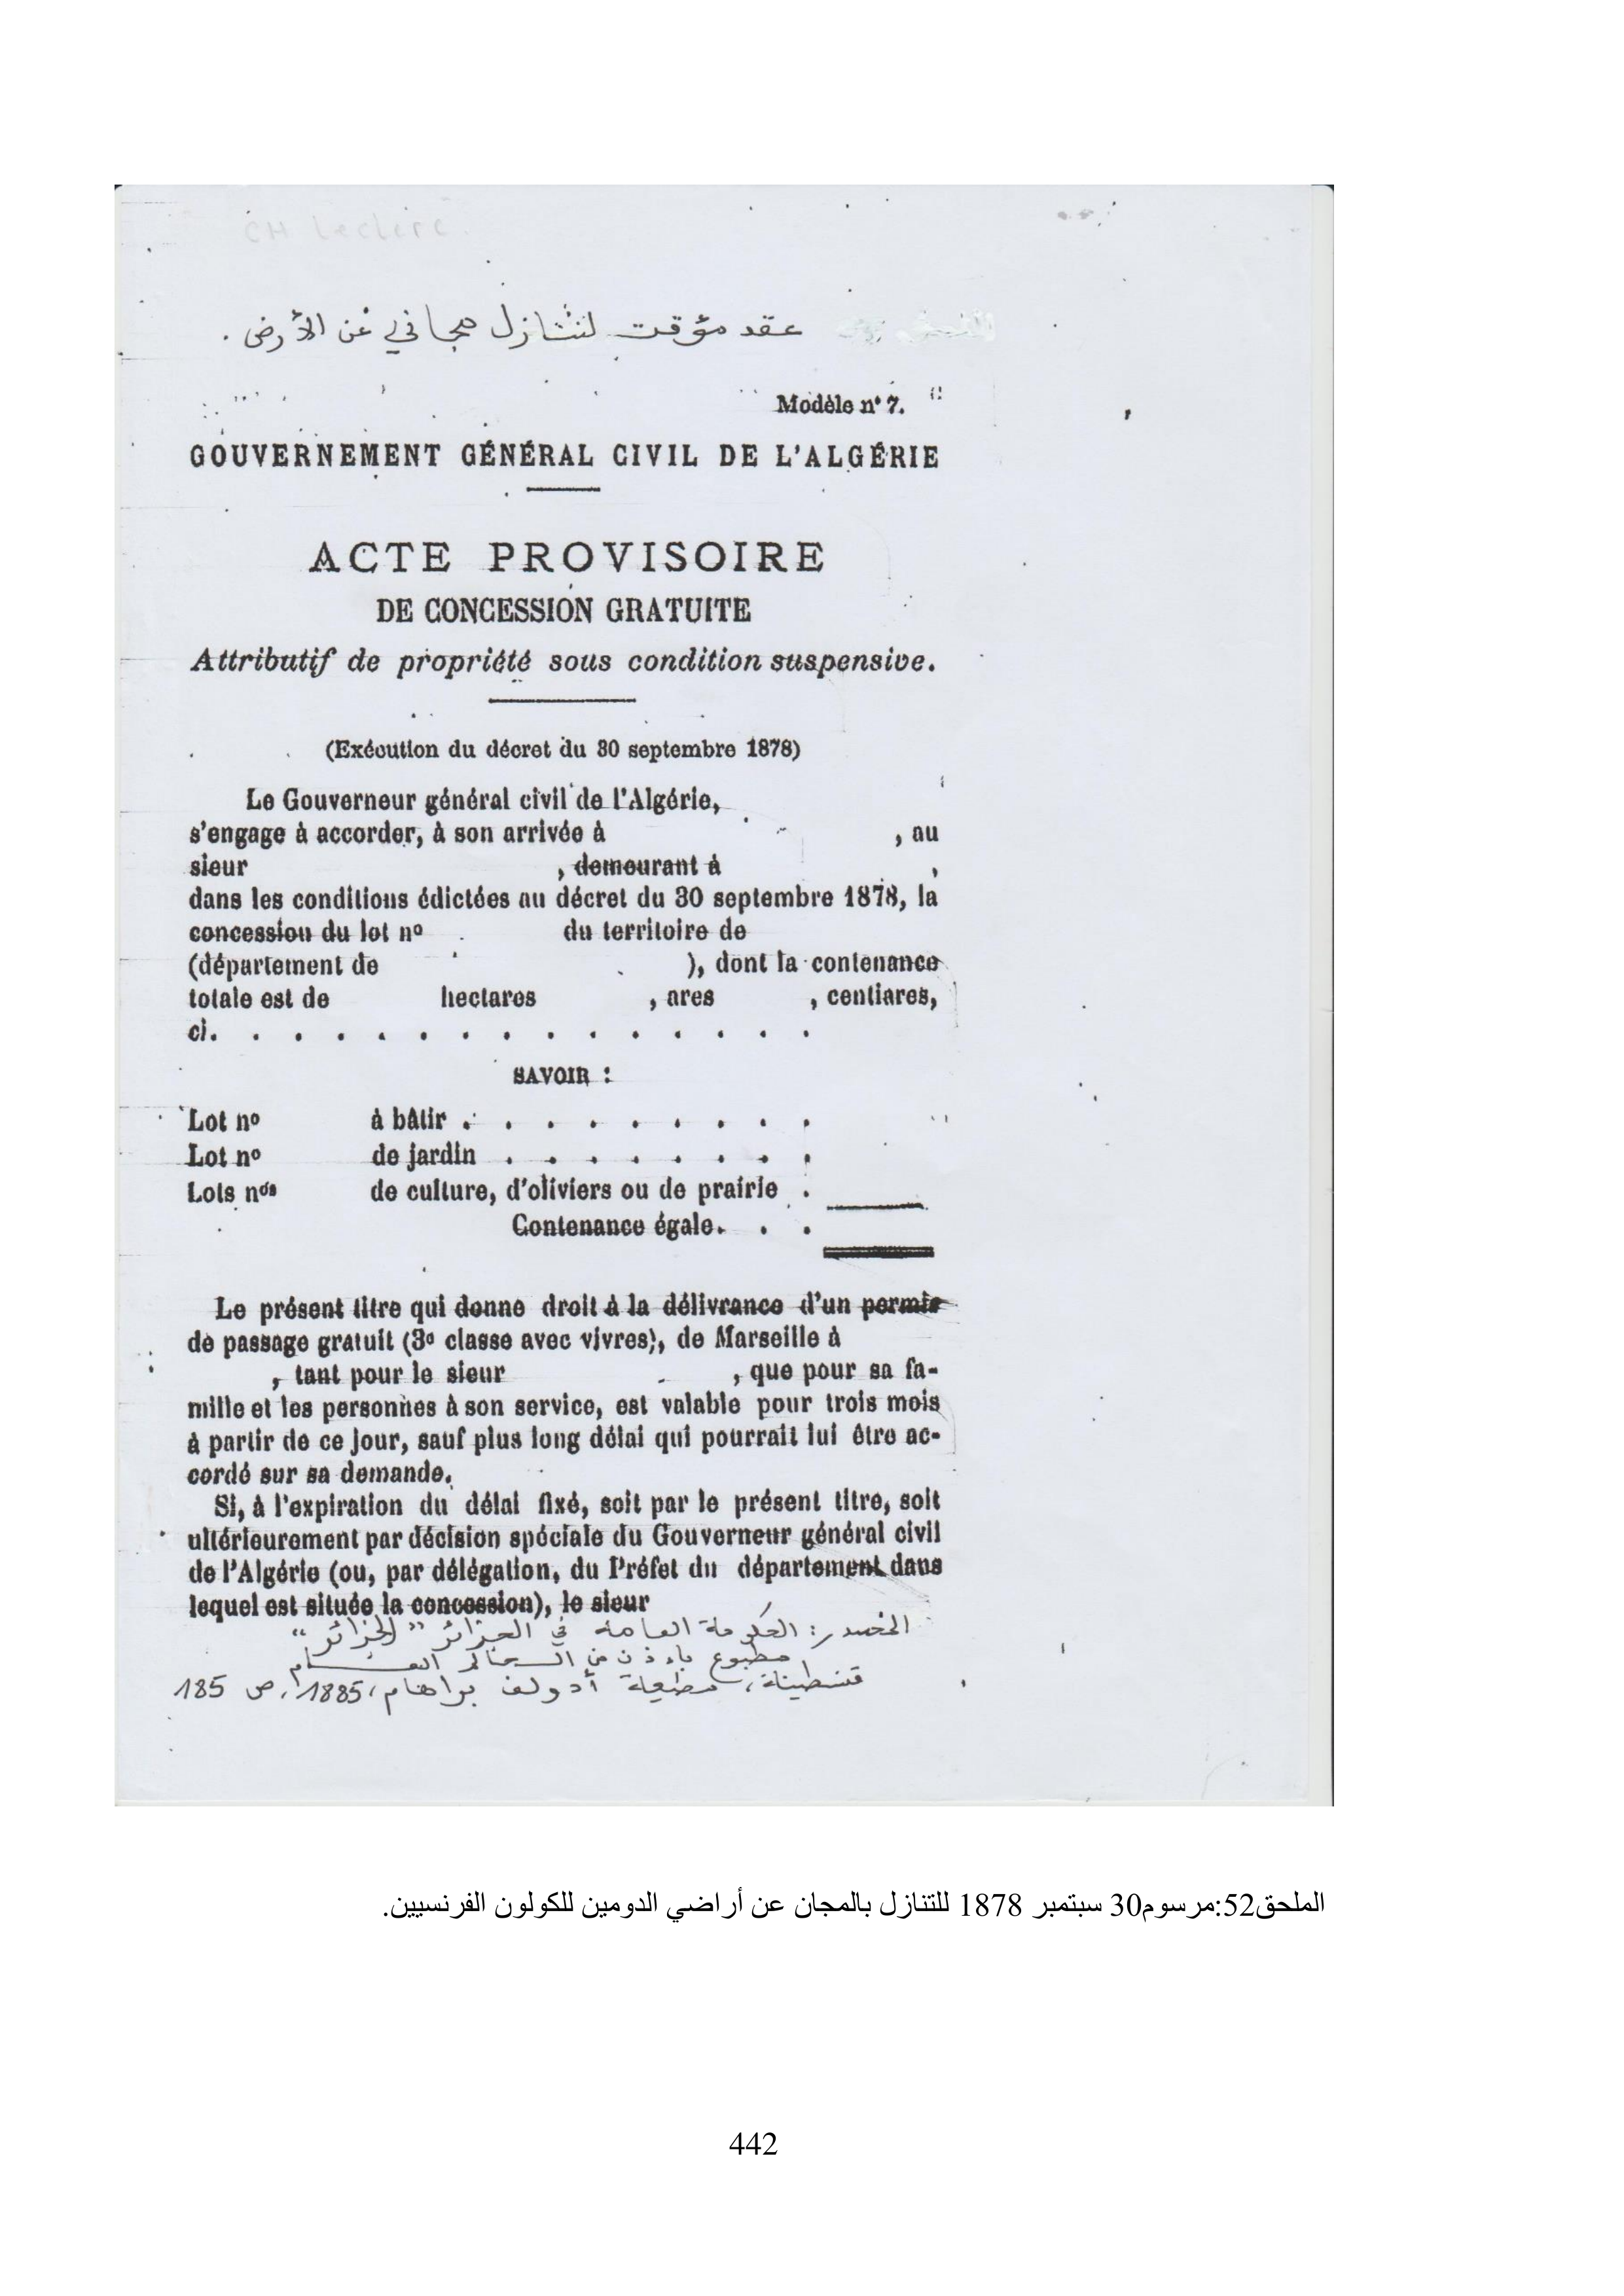 CH Leclerc
عقد مؤقت لتنازل مجاني عن الأرض.
Modèle n° 7.
GOUVERNEMENT GÉNÉRAL CIVIL DE L'ALGÉRIE
ACTE PROVISOIRE
DE CONCESSION GRATUITE
Attributif de propriété sous condition suspensive.
(Exécution du décret du 30 septembre 1878)
Le Gouverneur général civil de l'Algérie,
s'engage à accorder, à son arrivée à , au
sieur , demeurant à ,
dans les conditions édictées au décret du 30 septembre 1878, la
concession du lot n° du territoire de
(département de ), dont la contenance
totale est de hectares , ares , centiares,
ci. . . . . . . . . . . . . . .
SAVOIR :
Lot n° à bâtir . . . . . . . . .
Lot n° de jardin . . . . . . . .
Lots nos de culture, d'oliviers ou de prairie .
Contenance égale. . .
Le présent titre qui donne droit à la délivrance d'un permis
de passage gratuit (3e classe avec vivres), de Marseille à
, tant pour le sieur , que pour sa fa-
mille et les personnes à son service, est valable pour trois mois
à partir de ce jour, sauf plus long délai qui pourrait lui être ac-
cordé sur sa demande.
Si, à l'expiration du délai fixé, soit par le présent titre, soit
ultérieurement par décision spéciale du Gouverneur général civil
de l'Algérie (ou, par délégation, du Préfet du département dans
lequel est située la concession), le sieur
المصدر: الحكومة العامة في الجزائر "الجزائر"
مطبوع بإذن من
قسنطينة، مطبعة أدولف براهام، 1885، ص 185
الملحق52:مرسوم30 سبتمبر 1878 للتنازل بالمجان عن أراضي الدومين للكولون الفرنسيين.
442